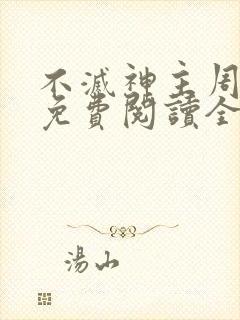 不滅神主周
免費閱讀全
湯山